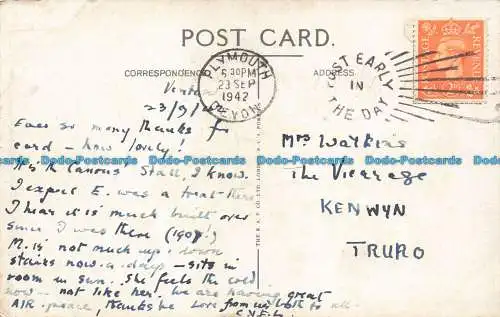 POST CARD.
CORRESPONDENCE
ADDRESS
PLYMOUTH
DEVON
6.30PM
23 SEP
1942
POST EARLY
IN
THE DAY
POSTAGE
REVENUE
23/9/42
Ever so many thanks for
card - how lovely!
It's the Canons' Stall, I know.
I expect E. was a treat there
I hear it is much built over
since I was there (1907!)
M. is not much up & down
stairs now-a-days - sits in
room in sun. She feels the cold
now - not like her. We are having great
AIR-peace, thanks be Love from us both to all.
Mrs Watkins
The Vicarage
KENWYN
TRURO
Dodo-Postcards Dodo-Postcards Dodo-Postcards Dodo-Postcards